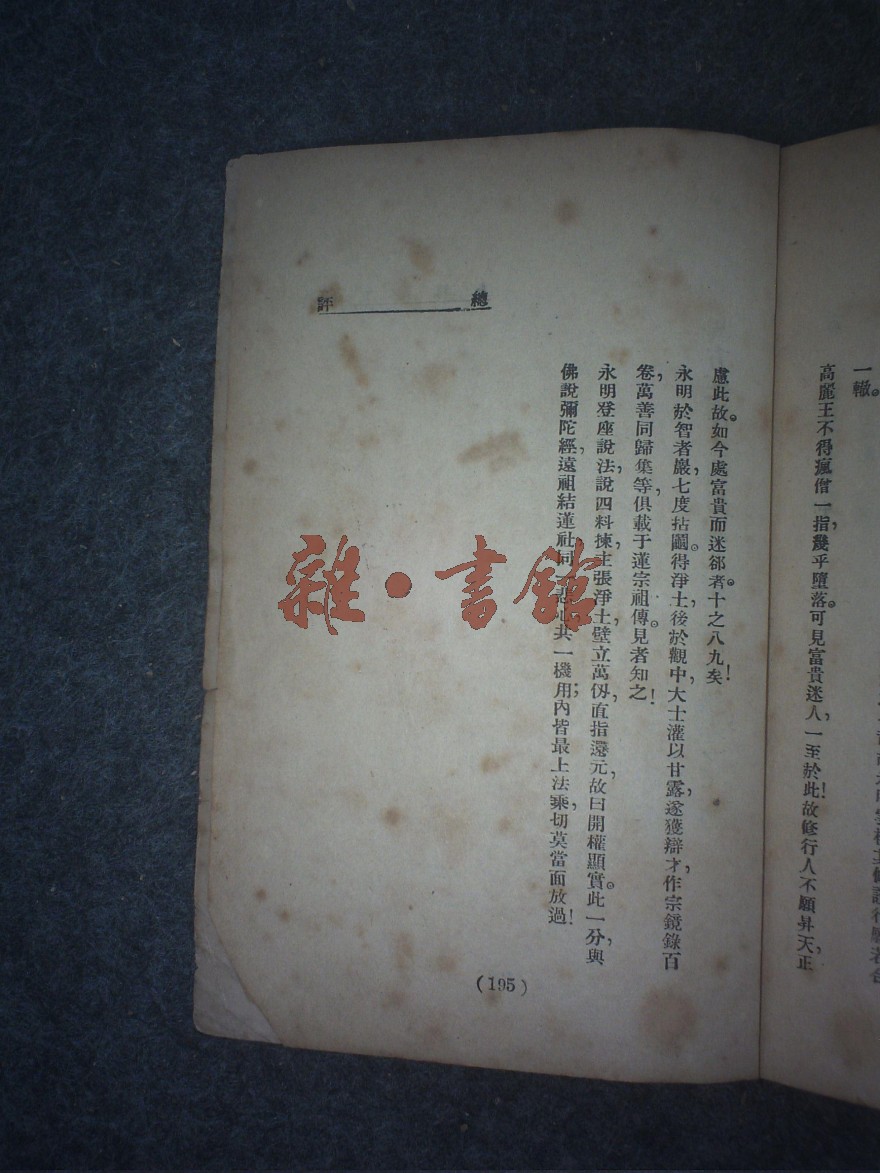 一轍。
高麗王不得瘋僧一指，幾乎墮落。可見富貴迷人，一至於此！故修行人不願昇天，正
總評
慮此故。如今處富貴而迷邻者。十之八九矣！
永明於智者巖，七度拈鬮。得淨土後，於觀中大士灌以甘露，遂獲辯才，作宗鏡錄百
卷，萬善同歸集等，俱載于蓮宗祖傳。見者知之！
永明登座說法，說四料揀，主張淨土，壁立萬仭，直指還元，故曰開權顯實。此一分，與
佛說彌陀經，遠祖結蓮社，同一悲心，共一機用；內皆最上法乘，切莫當面放過！
(195)
雜·書館